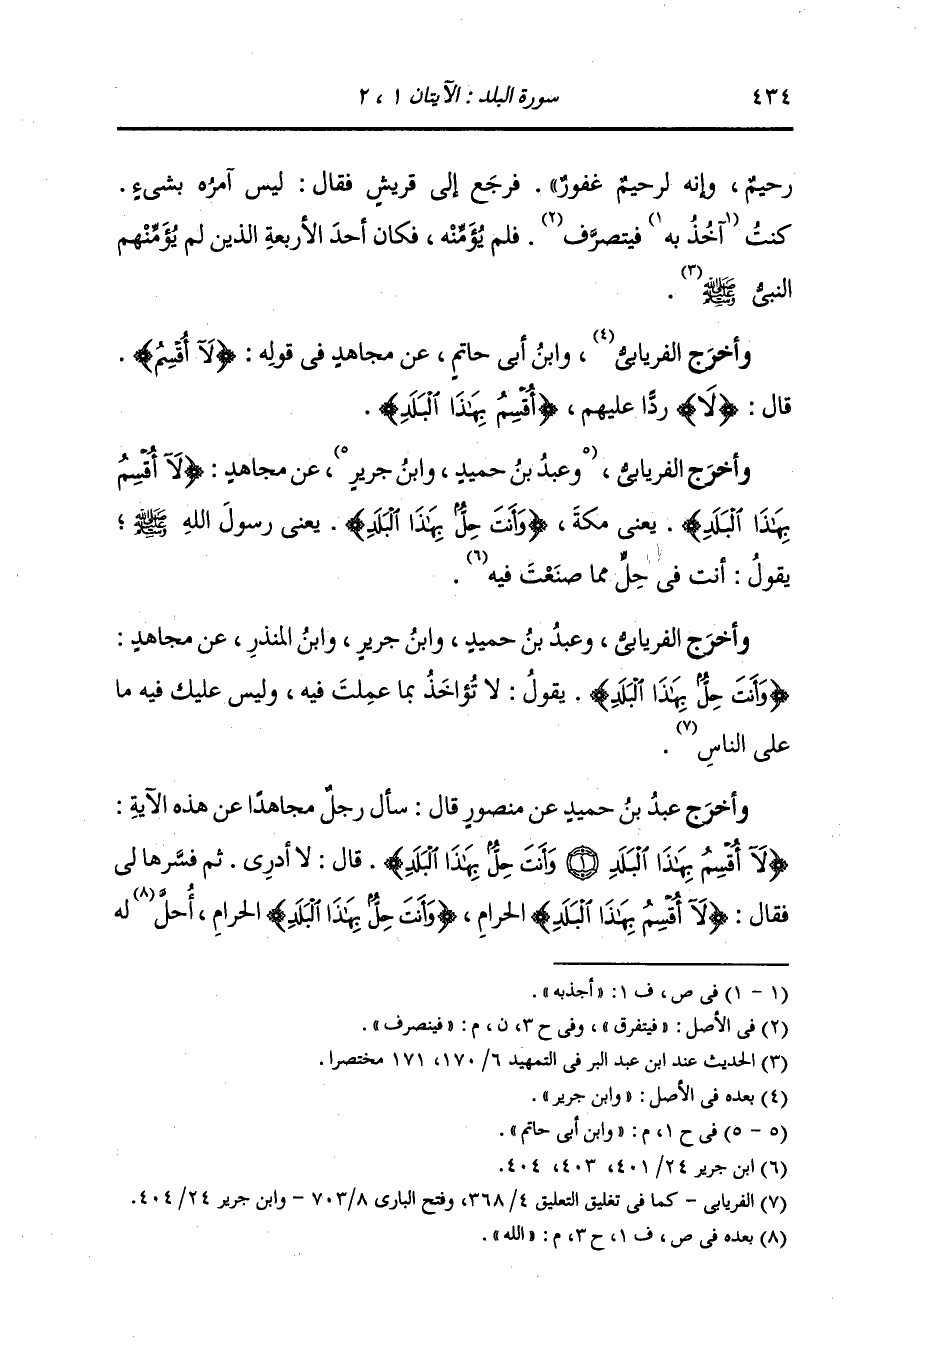 ٤٣٤ سورة البلد : الآيتان ١ ، ٢
رحيمٌ ، وإنه لرحيمٌ غفورٌ» . فرجَع إلى قريشٍ فقال : ليس آمرُه بشىءٍ .
كنتُ (١آخُذُ به١) فيتصرَّف(٢) . فلم يُؤَمِّنْه ، فكان أحدَ الأربعةِ الذين لم يُؤَمِّنْهم
النبىُّ ﷺ(٣) .
وأخرَج الفريابىُّ(٤) ، وابنُ أبى حاتمٍ ، عن مجاهدٍ فى قولِه : ﴿لَآ أُقْسِمُ﴾ .
قال : ﴿لَا﴾ ردًّا عليهم ، ﴿أُقْسِمُ بِهَٰذَا ٱلْبَلَدِ﴾ .
وأخرَج الفريابىُّ ، (٥وعبدُ بنُ حميدٍ ، وابنُ جريرٍ٥) ، عن مجاهدٍ : ﴿لَآ أُقْسِمُ
بِهَٰذَا ٱلْبَلَدِ﴾ . يعنى مكةَ ، ﴿وَأَنتَ حِلٌّۢ بِهَٰذَا ٱلْبَلَدِ﴾ . يعنى رسولَ اللهِ ﷺ ؛
يقولُ : أنت فى حِلٍّ مما صنَعْتَ فيه(٦) .
وأخرَج الفريابىُّ ، وعبدُ بنُ حميدٍ ، وابنُ جريرٍ ، وابنُ المنذرِ ، عن مجاهدٍ :
﴿وَأَنتَ حِلٌّۢ بِهَٰذَا ٱلْبَلَدِ﴾ . يقولُ : لا تُؤاخَذُ بما عمِلتَ فيه ، وليس عليك فيه ما
على الناسِ(٧) .
وأخرَج عبدُ بنُ حميدٍ عن منصورٍ قال : سأل رجلٌ مجاهدًا عن هذه الآيةِ :
﴿لَآ أُقْسِمُ بِهَٰذَا ٱلْبَلَدِ ۝١ وَأَنتَ حِلٌّۢ بِهَٰذَا ٱلْبَلَدِ﴾ . قال : لا أدرِى . ثم فسَّرها لى
فقال : ﴿لَآ أُقْسِمُ بِهَٰذَا ٱلْبَلَدِ﴾ الحرامِ ، ﴿وَأَنتَ حِلٌّۢ بِهَٰذَا ٱلْبَلَدِ﴾ الحرامِ ، أُحلَّ(٨) له
(١ - ١) فى ص ، ف ١ : «أجذبه» .
(٢) فى الأصل : «فيتفرق» ، وفى ح ٣، ن ، م : «فينصرف» .
(٣) الحديث عند ابن عبد البر فى التمهيد ٦/ ١٧٠، ١٧١ مختصرا .
(٤) بعده فى الأصل : «وابن جرير» .
(٥ - ٥) فى ح ١، م : «وابن أبى حاتم» .
(٦) ابن جرير ٢٤/ ٤٠١، ٤٠٣، ٤٠٤.
(٧) الفريابى - كما فى تغليق التعليق ٤/ ٣٦٨، وفتح البارى ٧٠٣/٨ - وابن جرير ٢٤/ ٤٠٤.
(٨) بعده فى ص ، ف ١، ح ٣، م : «الله» .